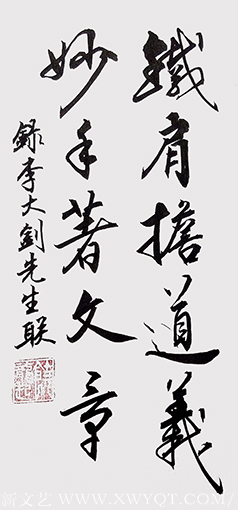 鐵肩擔道義
妙手著文章
錄李大釗先生联
新文艺 www.xwyqt.com